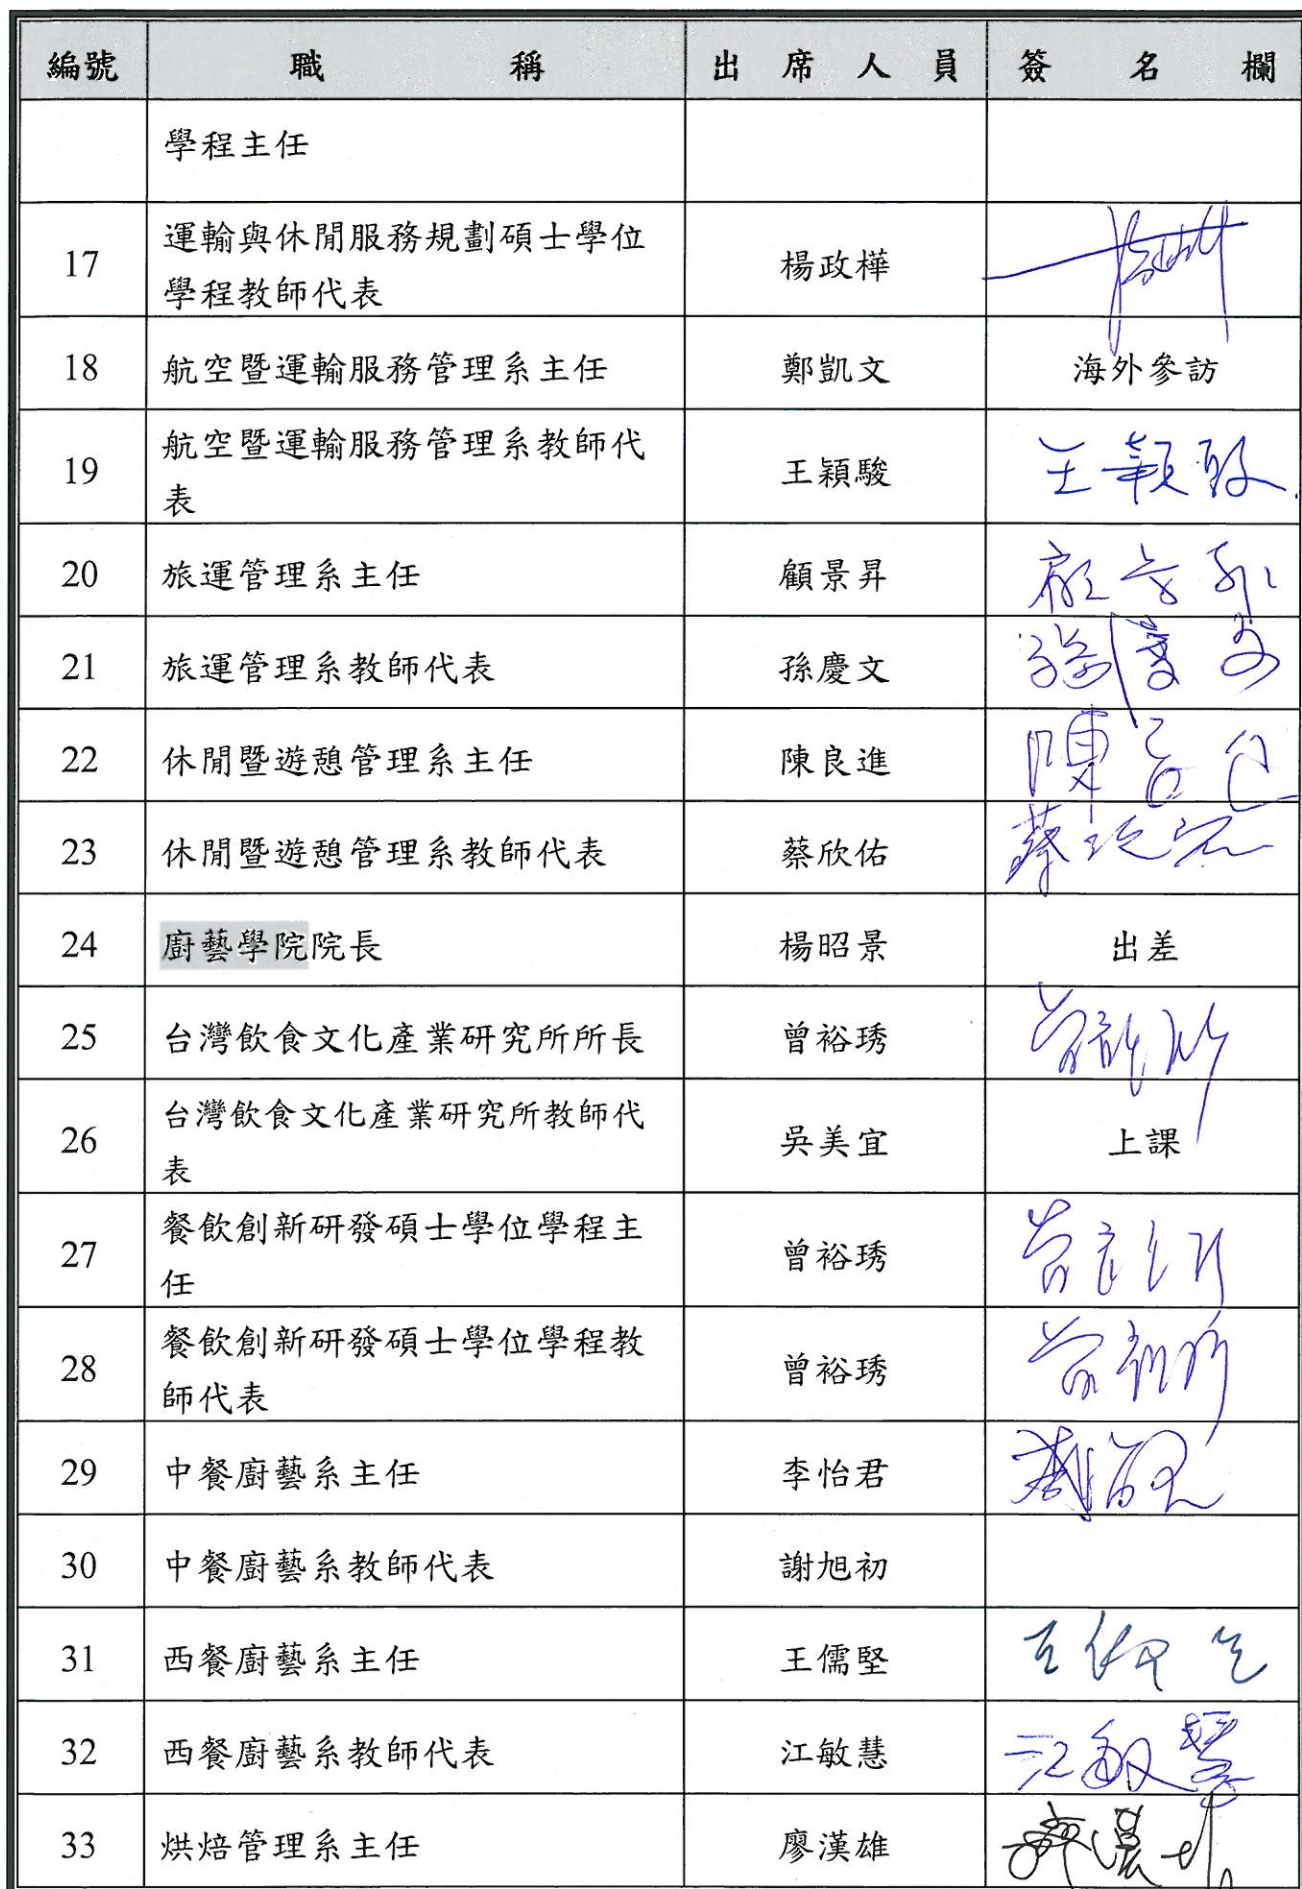 編號 職稱 出席人員 簽名欄
學程主任
17 運輸與休閒服務規劃碩士學位 楊政樺
學程教師代表
18 航空暨運輸服務管理系主任 鄭凱文 海外參訪
19 航空暨運輸服務管理系教師代 王穎駿 王穎駿
表
20 旅運管理系主任 顧景昇
21 旅運管理系教師代表 孫慶文 孫慶文
22 休閒暨遊憩管理系主任 陳良進
23 休閒暨遊憩管理系教師代表 蔡欣佑
24 廚藝學院院長 楊昭景 出差
25 台灣飲食文化產業研究所所長 曾裕琇
26 台灣飲食文化產業研究所教師代 吳美宜 上課
表
27 餐飲創新研發碩士學位學程主 曾裕琇
任
28 餐飲創新研發碩士學位學程教 曾裕琇
師代表
29 中餐廚藝系主任 李怡君
30 中餐廚藝系教師代表 謝旭初
31 西餐廚藝系主任 王儒堅
32 西餐廚藝系教師代表 江敏慧 江敏慧
33 烘焙管理系主任 廖漢雄